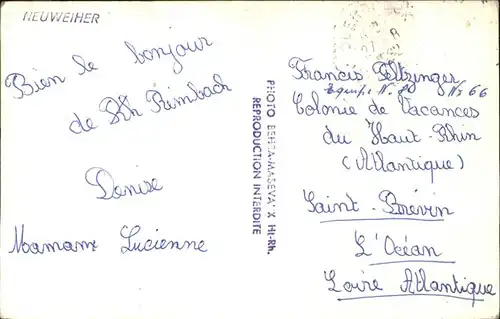 NEUWEIHER
Bien le bonjour
de Rimbach
Denise
Maman Lucienne
PHOTO BEHRA-MASEVAUX Ht-Rh.
REPRODUCTION INTERDITE
Francis Feltzinger
Equipe N. 20 No 66
Colonie de Vacances
du Haut-Rhin
(Atlantique)
Saint-Brévin
L'Océan
Loire Atlantique